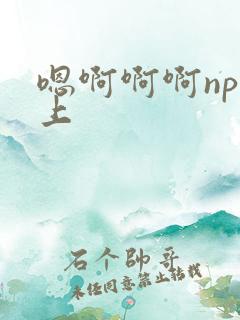 嗯啊啊啊np
上
石个帥哥
未经同意禁止转载